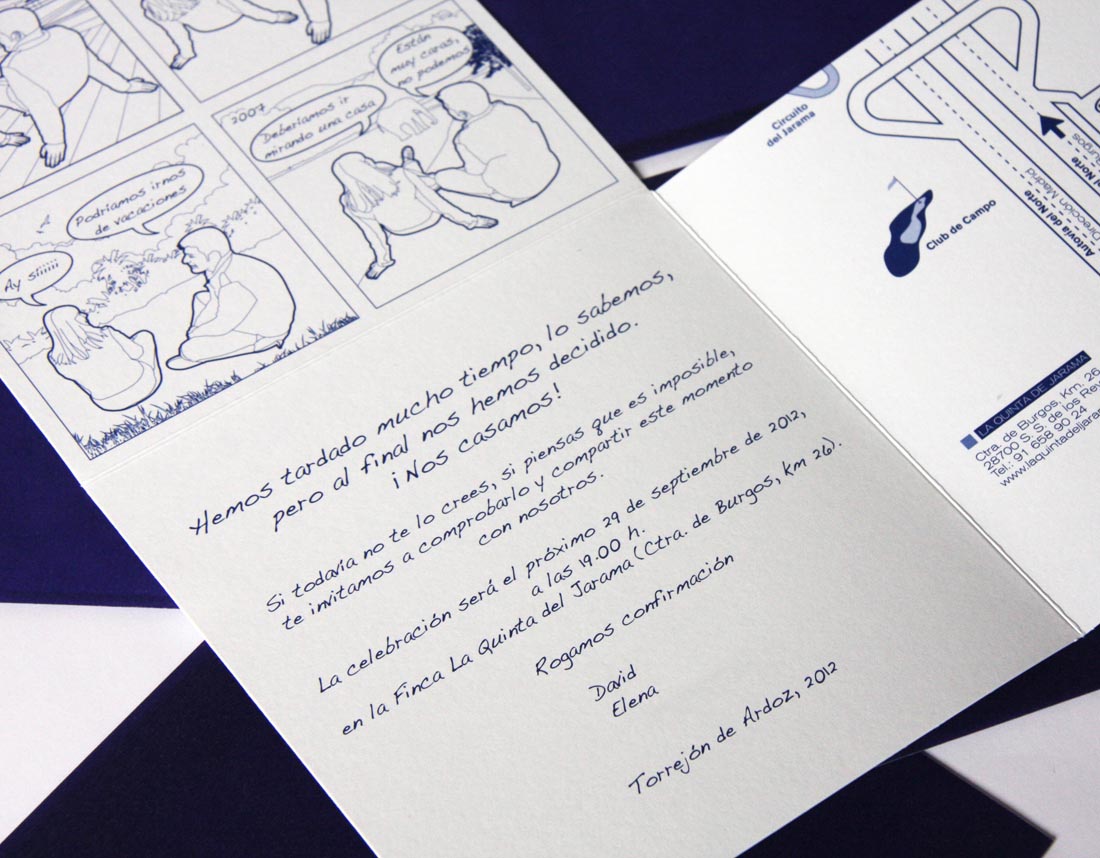 2007
Deberíamos ir
mirando una casa
Están
muy caras,
no podemos
Podríamos irnos
de vacaciones
Ay síiiii
Hemos tardado mucho tiempo, lo sabemos,
pero al final nos hemos decidido.
¡Nos casamos!
Si todavía no te lo crees, si piensas que es imposible,
te invitamos a comprobarlo y compartir este momento
con nosotros.
La celebración será el próximo 29 de septiembre de 2012,
a las 19.00 h.
en la Finca La Quinta del Jarama (Ctra. de Burgos, km 26).
Rogamos confirmación
David
Elena
Torrejón de Ardoz, 2012
Circuito
del Jarama
Club de Campo
Autovía del Norte
Dirección Madrid
LA QUINTA DE JARAMA
Ctra. de Burgos, Km. 26
28700 S. S. de los
Tel.: 91 658 90 24